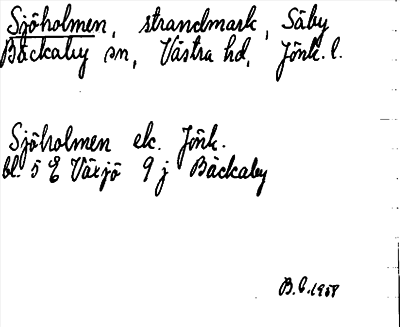 Sjöholmen, strandmark, Säby
Bäckaby sn, Västra hd, Jönk. l.
Sjöholmen ek. Jönk.
bl. 5 E Växjö 9 j Bäckaby
B.C. 1958